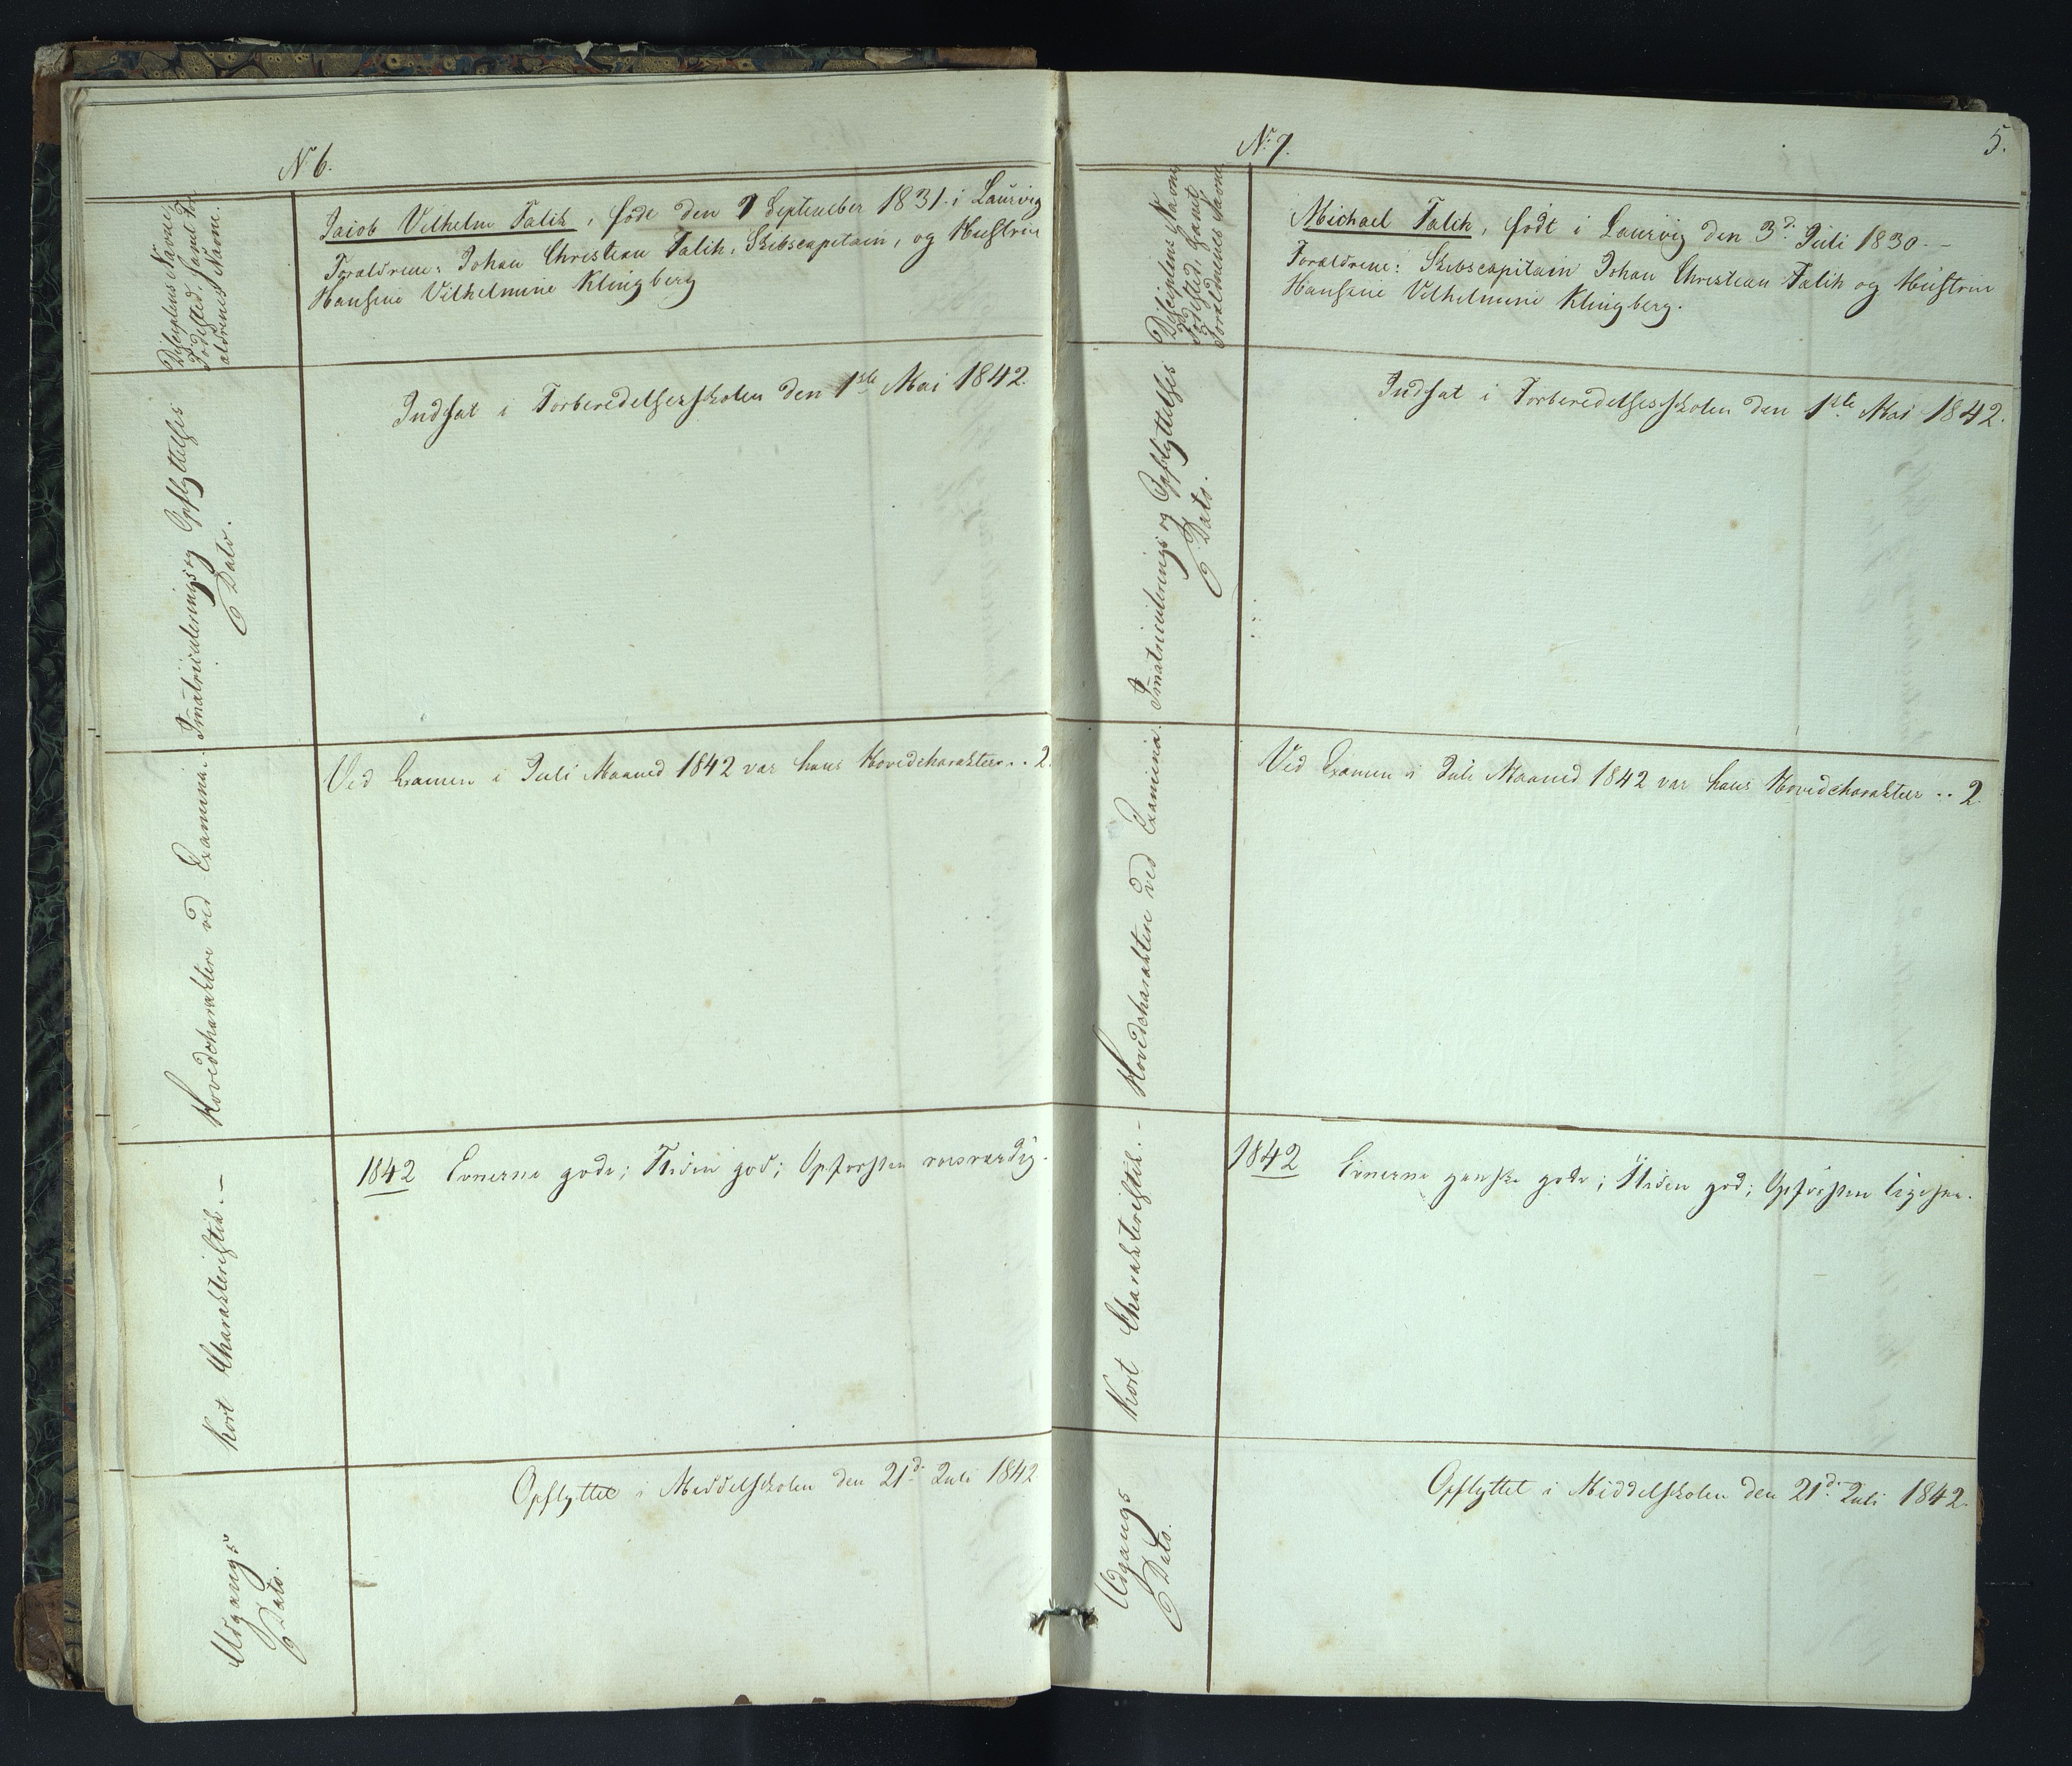 N. 6.
Disciplens Navne,
Fødested, samt For
ældrenes Navne.
Jacob Vilhelm Falik, født den 7 September 1831 i Laurvig
Forældrene: Johan Christian Falik, Skibscapitain, og Hustrue
Hansine Vilhelmine Klingberg
Imatriculerings og Opflyttelses
Dato.
Indsat i Forberedelsesskolen den 1ste Mai 1842.
Hovedcharaktere ved Examina.
Ved Examen i Juli Maaned 1842 var hans Hovedcharakteer.. 2.
Kort Charakteristik. –
1842 Evnerne gode; Fliden god; Opførslen roesværdig.
Udgangs
Dato.
Opflyttet i Middelskolen den 21d. Juli 1842
5.
N. 7.
Disciplens Navne,
Fødested, samt
Forældrenes Navne.
Michael Falik, født i Laurvig den 3d. Juli 1830. –
Forældrene: Skibscapitain Johan Christian Falik og Hustrue
Hansine Vilhelmine Klingberg.
Imatriculerings og Opflyttelses
Dato.
Indsat i Forberedelsesskolen den 1ste Mai 1842.
Hovedcharaktere ved Examina.
Ved Examen i Juli Maaned 1842 var hans Hovedcharakteer .. 2.
Kort Charakteristik. –
1842 Evnerne ganske gode; Fliden god; Opførslen ligesaa.
Udgangs
Dato.
Opflyttet i Middelskolen den 21d. Juli 1842.